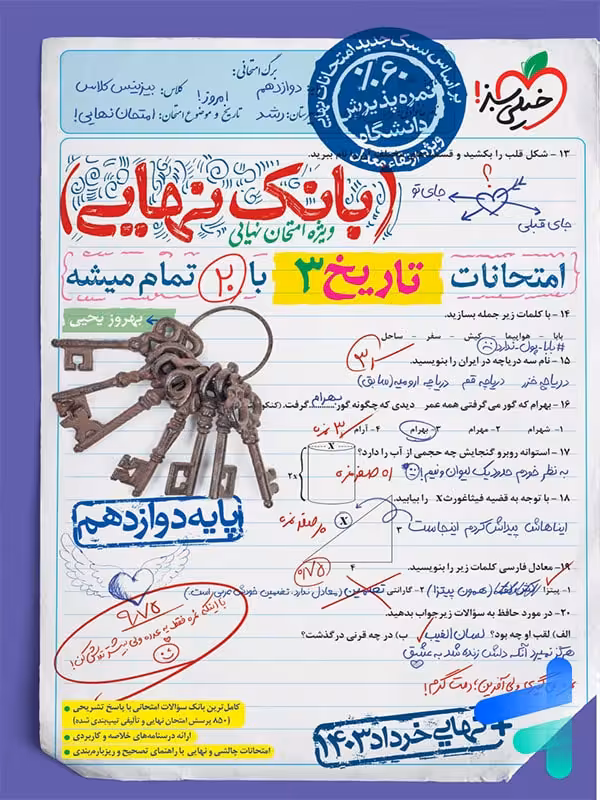 خیلی سبز!
براساس سبک جدید امتحانات نهایی
%۶۰
نمره پذیرش
دانشگاه
ویژه ارتقاء معدل
برگ امتحانی:
دوازدهم
کلاس: بیزینس کلاس
رشد
امروز!
تاریخ و موضوع امتحان: امتحان نهایی!
۱۳ - شکل قلب را بکشید و
ببرید.
؟
جای تو
جای قبلی
(بانک نهایی)
ویژه امتحان نهایی
امتحانات تاریخ ۳ با ۲۰ تمام میشه
بهروز یحیی
۱۴ - با کلمات زیر جمله بسازید.
بابا - هواپیما - کیش - سفر - ساحل
#بابا-پول-ندارد
۱۵ - نام سه دریاچه در ایران را بنویسید.
دریاچه خزر دریاچه قم دریاچه ارومیه (سابق)
۱۶ - بهرام که گور می‌گرفتی همه عمر دیدی که چگونه گور بهرام گرفت.
۱- شهرام ۲- مهرام ۳- بهرام ۴- آرام
۱۷ - استوانه روبرو گنجایش چه حجمی از آب را دارد؟
به نظر خودم حدود یک لیوان و نیم!
X
2X
۱۸ - با توجه به قضیه فیثاغورث X را بیابید.
ایناهاش پیداش کردم اینجاست
X
۳
۴
۰/۷۵
پایه دوازدهم
۱۹ - معادل فارسی کلمات زیر را بنویسید.
۱- پیتزا (همون پیتزا) ۲- گارانتی تضمین (معادل ندارد، تضمین خودش عربی است.)
۲۰ - در مورد حافظ به سؤالات زیر جواب بدهید.
الف) لقب او چه بود؟ لسان الغیب ب) در چه قرنی درگذشت؟
هرگز نمیرد آنکه دلش زنده شد به عشق
۹/۷۵
کامل‌ترین بانک سؤالات امتحانی با پاسخ تشریحی
(۸۵۰ پرسش امتحان نهایی و تألیفی تیپ‌بندی شده)
ارائه درسنامه‌های خلاصه و کاربردی
امتحانات چالشی و نهایی با راهنمای تصحیح و ریزبارم‌بندی
+ نهایی خرداد ۱۴۰۳